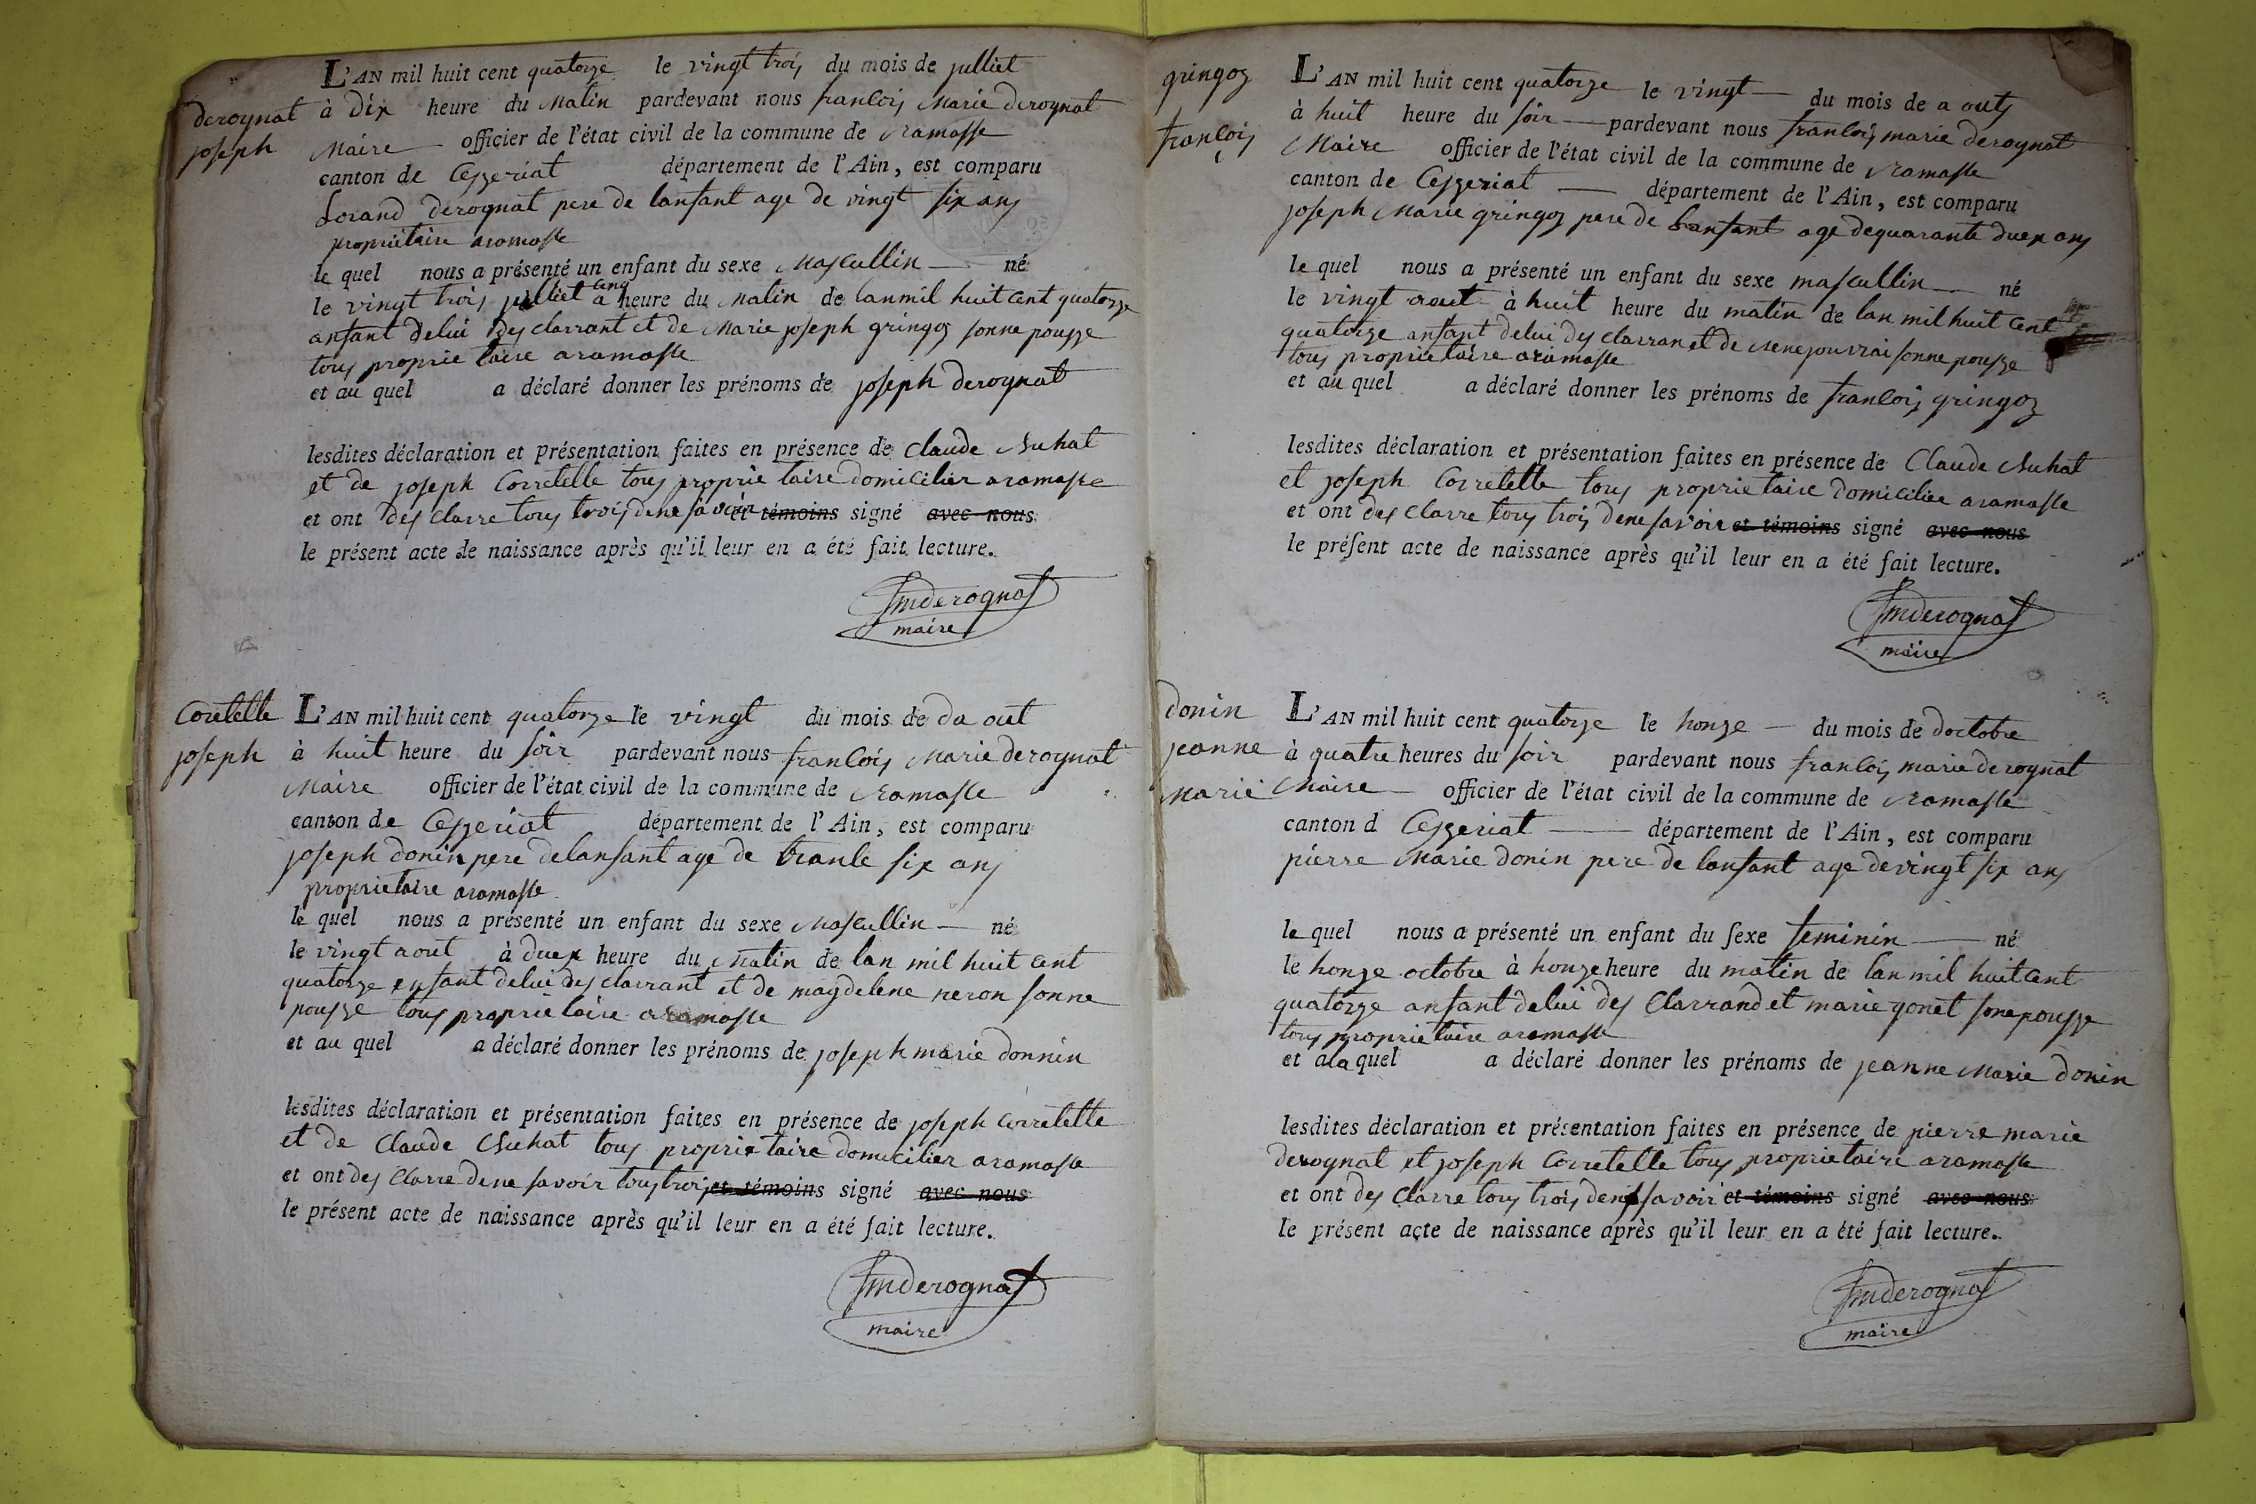 L'AN mil huit cent quatorze le vingt trois du mois de julliet
derognat
joseph
à dix heure du matin pardevant nous francois marie derognat
Maire officier de l'état civil de la commune de ramasse
canton de Ceyzeriat département de l'Ain, est comparu
Lorand derognat pere de lansant age de vingt six ans
proprietaire aramasse
le quel nous a présenté un enfant du sexe Mascullin né
le vingt trois julliet a cinq heure du matin de lanmil huit cent quatorze
ansant delui des clarrant et de Marie joseph gringoz sonne pousze
tous proprie taire aramasse
et au quel a déclaré donner les prénoms de joseph derognat
lesdites déclaration et présentation faites en présence de Claude Chuhat
et de joseph Corretelle tous proprie taire domicilier aramasse
et ont des clarre tous trois dene savoir et témoins signé avec nous
le présent acte de naissance après qu'il leur en a été fait lecture.
fmderognat
maire
Coretelle
joseph
L'AN mil huit cent quatorze le vingt du mois de da out
à huit heure du soir pardevant nous francois Marie derognat
Maire officier de l'état civil de la commune de ramasse
canton de Ceyzeriat département de l'Ain, est comparu
joseph donin pere delansant age de trante six ans
proprietaire aramasse
le quel nous a présenté un enfant du sexe Mascullin né
le vingt aout à duex heure du matin de lan mil huit cent
quatorze ensant delui des clarrant et de magdelene neron sonne
pousze tous proprietaire aramasse
et au quel a déclaré donner les prénoms de joseph marie donnin
lesdites déclaration et présentation faites en présence de joseph Corretelle
et de Claude Chuhat tous proprietaire domicilier aramasse
et ont des clarre dene savoir tous trois et témoins signé avec nous
le présent acte de naissance après qu'il leur en a été fait lecture.
fmderognat
maire
gringoz
francois
L'AN mil huit cent quatorze le vingt du mois de a out
à huit heure du soir pardevant nous francois marie derognat
Maire officier de l'état civil de la commune de ramasse
canton de Ceyzeriat département de l'Ain, est comparu
joseph Marie gringoz pere de lansant age dequarante duex ans
le quel nous a présenté un enfant du sexe mascullin né
le vingt aout à huit heure du matin de lan mil huit cent
quatorze ansant delui des clarran et de rene jouvrai sonne pousze
tous proprietaire aramasse
et au quel a déclaré donner les prénoms de francois gringoz
lesdites déclaration et présentation faites en présence de Claude Chuhat
et joseph Corretelle tous proprietaire domiciliee aramasse
et ont des clarre tous trois dene savoir et témoins signé avec nous
le présent acte de naissance après qu'il leur en a été fait lecture.
fmderognat
maire
donin
jeanne
Marie
L'AN mil huit cent quatorze le honze du mois de doctobre
à quatre heures du soir pardevant nous francois marie derognat
Maire officier de l'état civil de la commune de ramasse
canton d Ceyzeriat département de l'Ain, est comparu
pierre Marie donin pere de lansant age devingt six ans
le quel nous a présenté un enfant du sexe feminin né
le honze octobre à honze heure du matin de lan mil huit cent
quatorze ansant delui des Clarrand et marie gonet sone pousze
tous proprietaire aramasse
et ala quel a déclaré donner les prénoms de jeanne Marie donin
lesdites déclaration et présentation faites en présence de pierre marie
derognat et joseph Corretelle tous proprietaire aramasse
et ont des Clarre tous trois dene savoir et témoins signé avec nous
le présent acte de naissance après qu'il leur en a été fait lecture.
fmderognat
maire